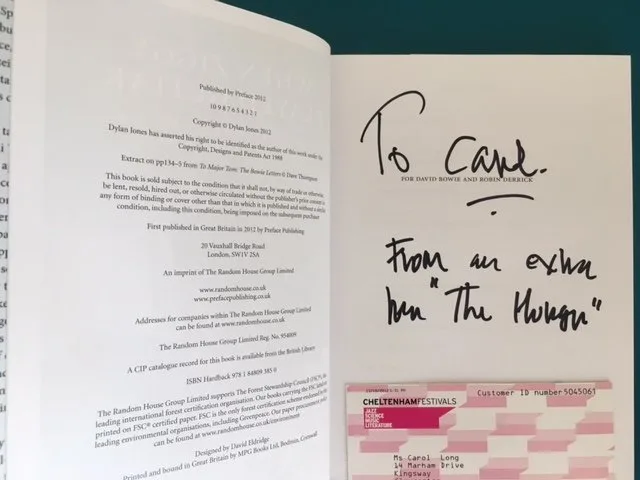 Published by Preface 2012
10 9 8 7 6 5 4 3 2 1
Copyright © Dylan Jones 2012
Dylan Jones has asserted his right to be identified as the author of this work under the
Copyright, Designs and Patents Act 1988
Extract on pp134–5 from To Major Tom: The Bowie Letters © Dave Thompson
This book is sold subject to the condition that it shall not, by way of trade or otherwise,
be lent, resold, hired out, or otherwise circulated without the publisher's prior consent in
any form of binding or cover other than that in which it is published and without a similar
condition, including this condition, being imposed on the subsequent purchaser
First published in Great Britain in 2012 by Preface Publishing
20 Vauxhall Bridge Road
London, SW1V 2SA
An imprint of The Random House Group Limited
www.randomhouse.co.uk
www.prefacepublishing.co.uk
Addresses for companies within The Random House Group Limited
can be found at www.randomhouse.co.uk
The Random House Group Limited Reg. No. 954009
A CIP catalogue record for this book is available from the British Library
ISBN Hardback 978 1 84809 385 0
The Random House Group Limited supports The Forest Stewardship Council (FSC®), the
leading international forest certification organisation. Our books carrying the FSC label are
printed on FSC® certified paper. FSC is the only forest certification scheme endorsed by the
leading environmental organisations, including Greenpeace. Our paper procurement policy
can be found at www.randomhouse.co.uk/environment
Designed by David Eldridge
Printed and bound in Great Britain by MPG Books Ltd, Bodmin, Cornwall
To Carol.
FOR DAVID BOWIE AND ROBIN DERRICK
From an extra
"The Hunger"
Customer ID number 5045061
CHELTENHAMFESTIVALS
JAZZ
SCIENCE
MUSIC
LITERATURE
Ms Carol Long
14 Marham Drive
Kingsway